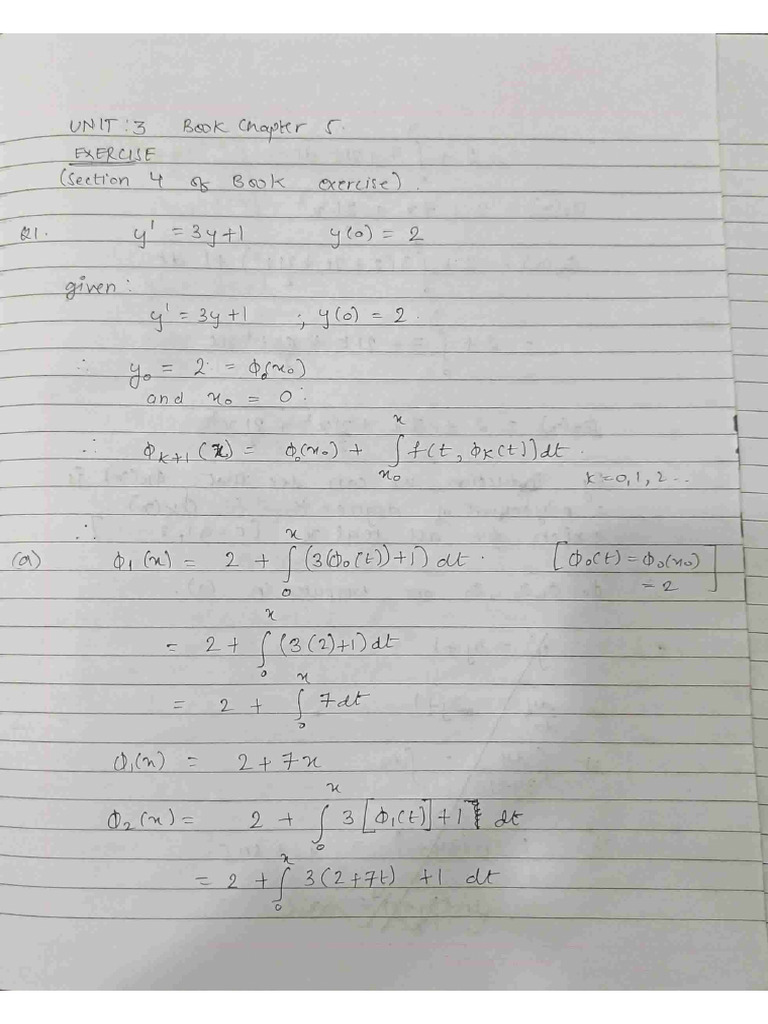 UNIT: 3 Book Chapter 5.
EXERCISE
(Section 4 of Book exercise).
Q1. y' = 3y+1 y(0) = 2
given:
y' = 3y+1 ; y(0) = 2.
∴ y₀ = 2 = ϕ₀(x₀)
and x₀ = 0
∴ ϕₖ₊₁(x) = ϕ₀(x₀) + ∫ₓ₀ˣ f(t, ϕₖ(t))dt. k=0,1,2...
∴
(a) ϕ₁(x) = 2 + ∫₀ˣ (3(ϕ₀(t))+1) dt. [ϕ₀(t) = ϕ₀(x₀) = 2]
= 2 + ∫₀ˣ (3(2)+1)dt
= 2 + ∫₀ˣ 7dt
ϕ₁(x) = 2+7x
ϕ₂(x) = 2 + ∫₀ˣ 3[ϕ₁(t)]+1 dt
= 2 + ∫₀ˣ 3(2+7t) +1 dt